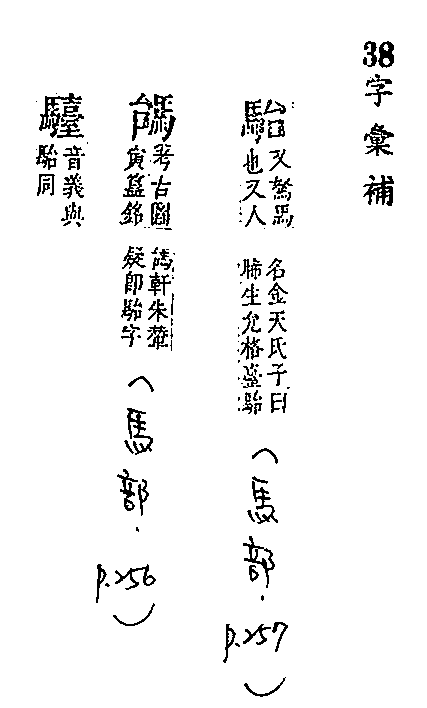 38字彙補
駘
又駑馬
也又人
名金天氏子曰
生允格臺駘
(馬部.
p.257)
考古圖
寅簋銘
軒朱
疑即駘字
(馬部.
p.256)
音義與
駘同